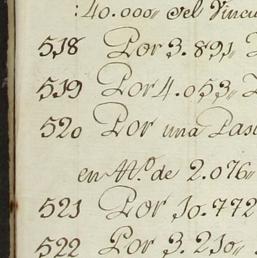 :40.000,, del Vincu
518 Por 3.891,
519 Por 4.053,,
520 Por una Pas
en M.º de 2.076,,
521 Por 10.772
522 Por 3.210,,